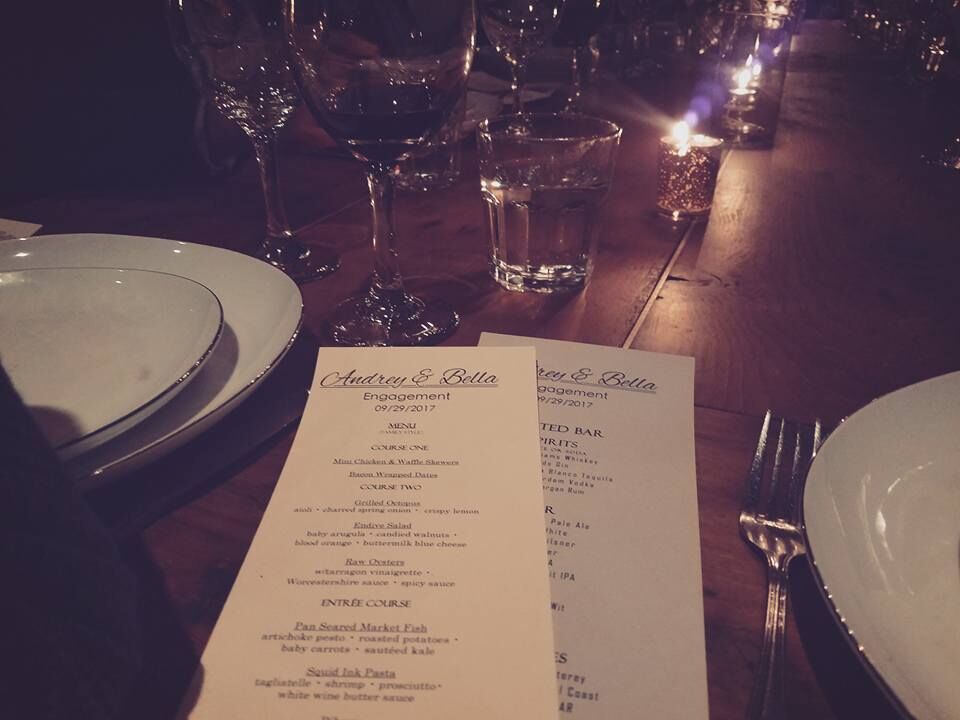 Andrey & Bella
Engagement
09/29/2017
MENU
(FAMILY STYLE)
COURSE ONE
Mini Chicken & Waffle Skewers
Bacon Wrapped Dates
COURSE TWO
Grilled Octopus
aioli • charred spring onion • crispy lemon
Endive Salad
baby arugula • candied walnuts •
blood orange • buttermilk blue cheese
Raw Oysters
w/tarragon vinaigrette •
Worcestershire sauce • spicy sauce
ENTRÉE COURSE
Pan Seared Market Fish
artichoke pesto • roasted potatoes •
baby carrots • sautéed kale
Squid Ink Pasta
tagliatelle • shrimp • prosciutto •
white wine butter sauce
rey & Bella
gagement
9/29/2017
TED BAR
PIRITS
OR SODA
Whiskey
Gin
Blanco Tequila
rdam Vodka
Rum
R
Pale Ale
hite
ilsner
er
A
it IPA
Wit
ES
terey
l Coast
AR